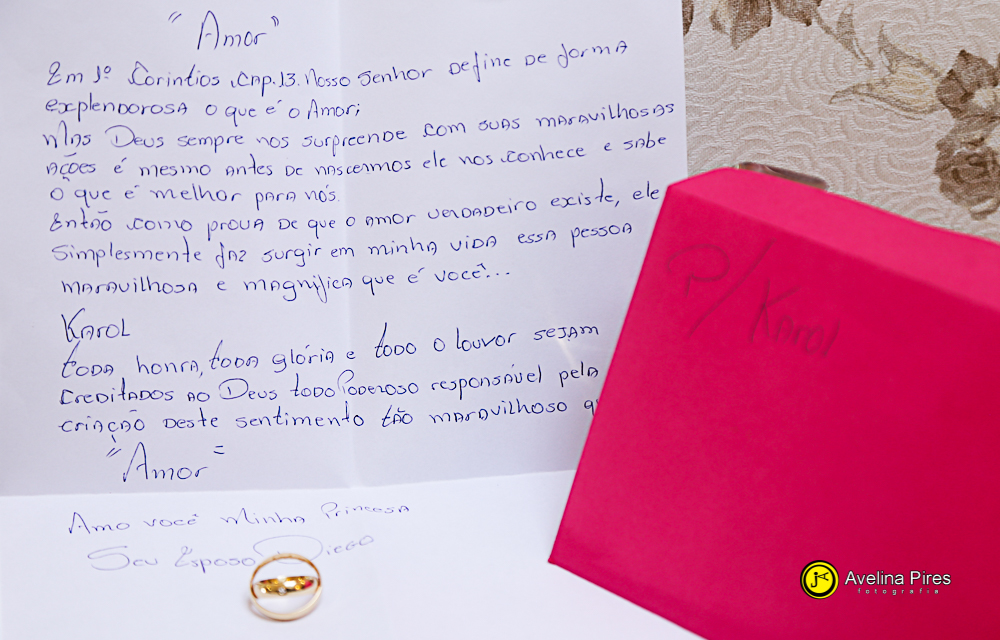 "Amor"
Em 1º Coríntios, Cap. 13. Nosso Senhor Define De forma
explendorosa o que é o Amor;
Mas Deus sempre nos surpreende com suas maravilhosas
ações é mesmo antes de nascermos ele nos conhece e sabe
o que é melhor para nós.
Então como prova de que o amor verdadeiro existe, ele
simplesmente faz surgir em minha vida essa pessoa
maravilhosa e magnifica que é você!...
Karol
toda honra, toda glória e todo o louvor sejam
creditados ao Deus todo Poderoso responsável pela
criação deste sentimento tão maravilhoso
"Amor"
Amo você minha Princesa
Seu Esposo Diego
P/ Karol
Avelina Pires
fotografia